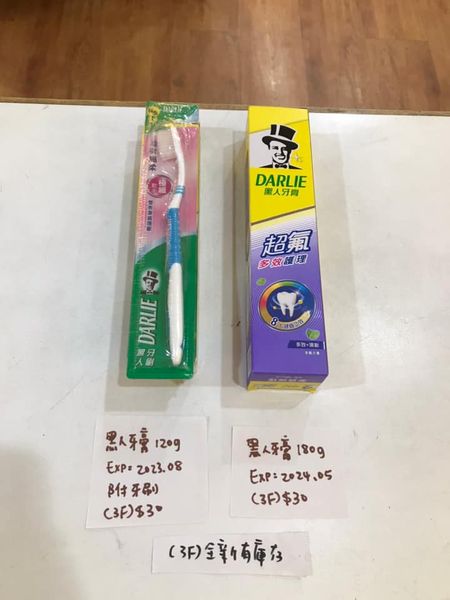 DARLIE
黑人牙刷
DARLIE
黑人牙膏
超氟
多效護理
8
多效+清新
黑人牙膏 120g
EXP: 2023.08
附牙刷
(3F) $30
黑人牙膏 180g
EXP: 2024.05
(3F) $30
(3F) 全新有庫存